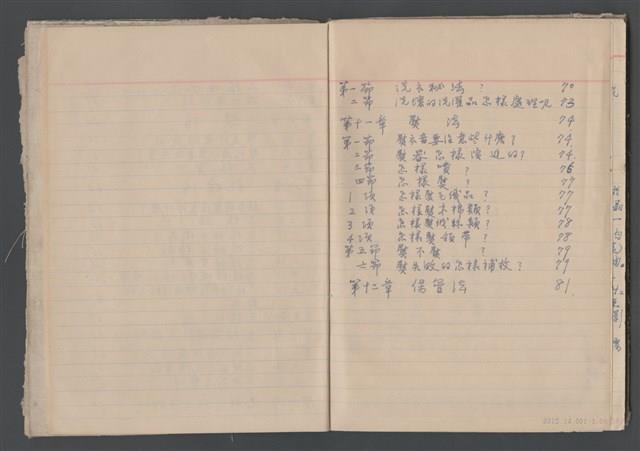 第一節 洗衣秘法？ 70
二節 洗壞的洗濯品怎樣處理呢 73
第十一章 熨法 74
第一節 熨衣着要注意些什麼？ 74
二節 熨器怎樣演進的？ 74
三節 怎樣噴？ 76
四節 怎樣熨？ 77
1項 怎樣熨毛織品？ 77
2項 怎樣熨木棉類？ 77
3項 怎樣熨絲類？ 78
4項 怎樣熨領帶？ 78
第五節 熨不熨？ 79
六節 熨失敗的怎樣補救？ 79
第十二章 保管法 81